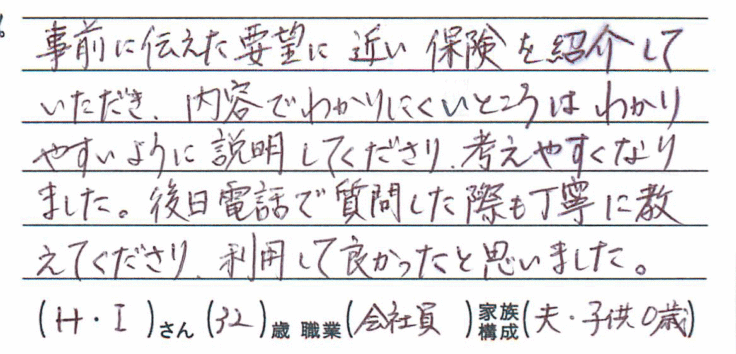 事前に伝えた要望に近い保険を紹介して
いただき、内容でわかりにくいところはわかり
やすいように説明してくださり、考えやすくなり
ました。後日電話で質問した際も丁寧に教
えてくださり、利用して良かったと思いました。
(H・I)さん (32)歳 職業(会社員)家族構成(夫・子供0歳)